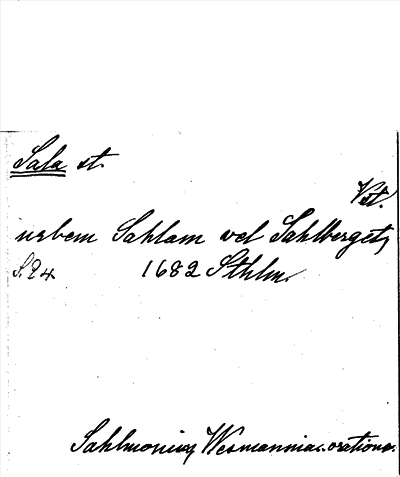 Sala st.
Vst.
urbem Sahlam vel Sahlberget,
S. 24 1682 Sthlm.
Sahlmonius Wesmanniae oratione.